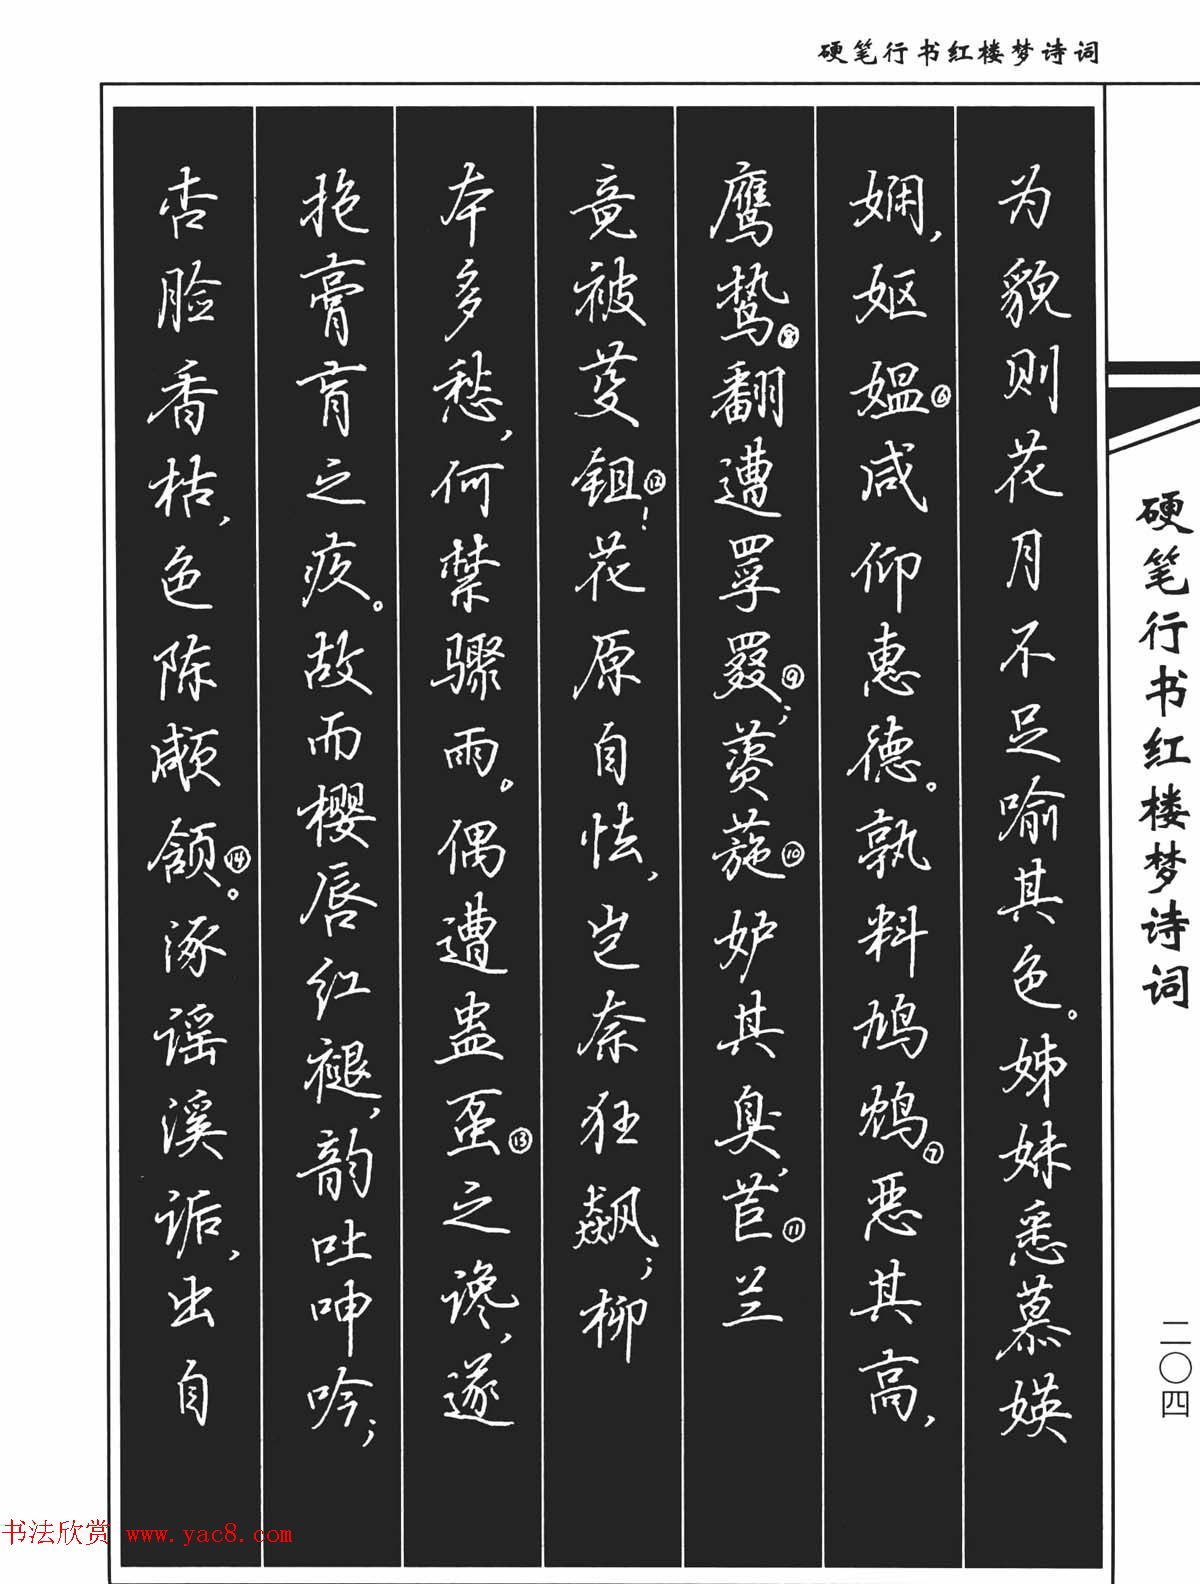 硬笔行书红楼梦诗词
为貌则花月不足喻其色。姊妹悉慕媖
娴，妪媪⑥咸仰惠德。孰料鸠鸩⑦恶其高，
鹰鸷⑧翻遭罦罬⑨；薋葹⑩妒其臭，茝⑪兰
竟被芟鉏⑫！花原自怯，岂奈狂飙；柳
本多愁，何禁骤雨。偶遭蛊虿⑬之谗，遂
抱膏肓之疚。故而樱唇红褪，韵吐呻吟；
杏脸香枯，色陈顑颔⑭。诼谣溪诟，出自
硬笔行书红楼梦诗词
二〇四
书法欣赏 www.yac8.com